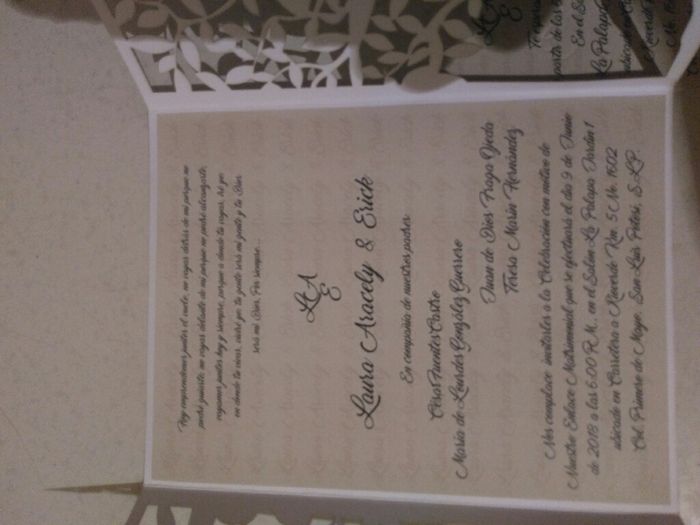 Hoy emprendemos juntos el vuelo, no vayas detrás de mí porque no
podré guiarte, no vayas delante de mí porque no podré alcanzarte,
vayamos juntos hoy y siempre, porque a donde tu vayas, iré yo;
en donde tu vivas, viviré yo; tu gente será mi gente y tu Dios
será mi Dios. Por siempre...
L & A
E
Laura Aracely & Erick
En compañía de nuestros padres:
César Fuentes Castro
María de Lourdes González Guerrero
Juan de Dios Fraga Ojeda
Teresa Marín Hernández
Nos complace invitarles a la Celebración con motivo de
Nuestro Enlace Matrimonial que se efectuará el día 9 de Junio
de 2018 a las 6:00 P.M., en el Salón La Palapa Jardín 1
ubicado en Carretera a Rioverde Km. 5 No. 1502
Col. Primero de Mayo, San Luis Potosí, S.L.P.